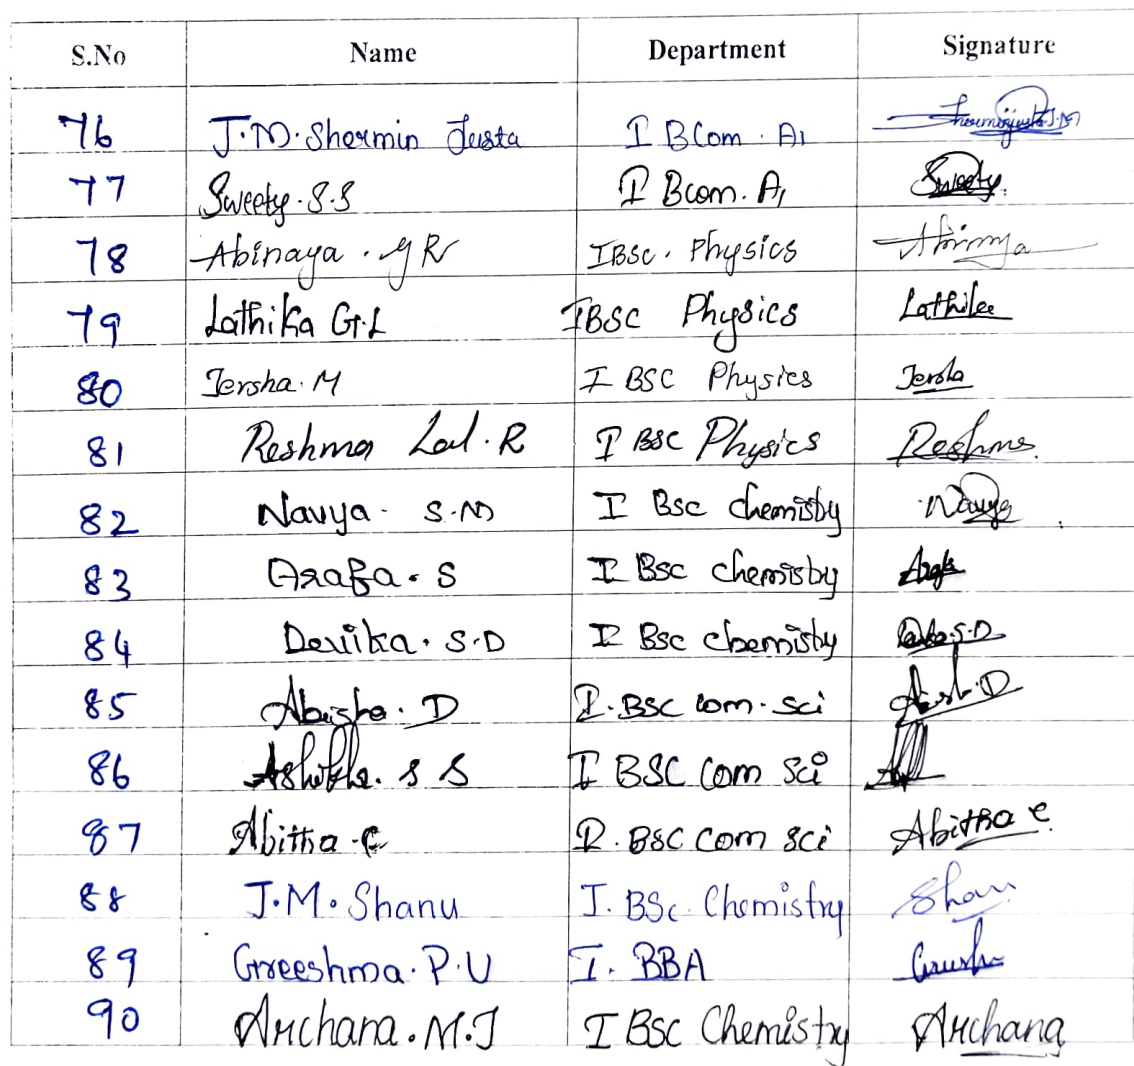 S.No Name Department Signature
76 J.M. Shermin Justa I BCom. A1
77 Sweety. S.S I Bcom. A1 Sweety
78 Abinaya. G R I Bsc. Physics Abinaya
79 Lathika G.L I BSC Physics Lathika
80 Jersha. M I BSC Physics Jersha
81 Reshma Lal. R I BSC Physics Reshma
82 Navya. S.M I Bsc chemistry Navya
83 Arafa. S I Bsc chemistry
84 Devika. S.D I Bsc chemistry S.D
85 Abisha. D I. BSC com. sci D
86 S S I BSC Com Sci
87 Abitha. C I. BSC Com Sci Abitha C
88 J.M. Shanu I. BSc. Chemistry Shanu
89 Greeshma. P.U I. BBA
90 Archana. M.J I BSC Chemistry Archana